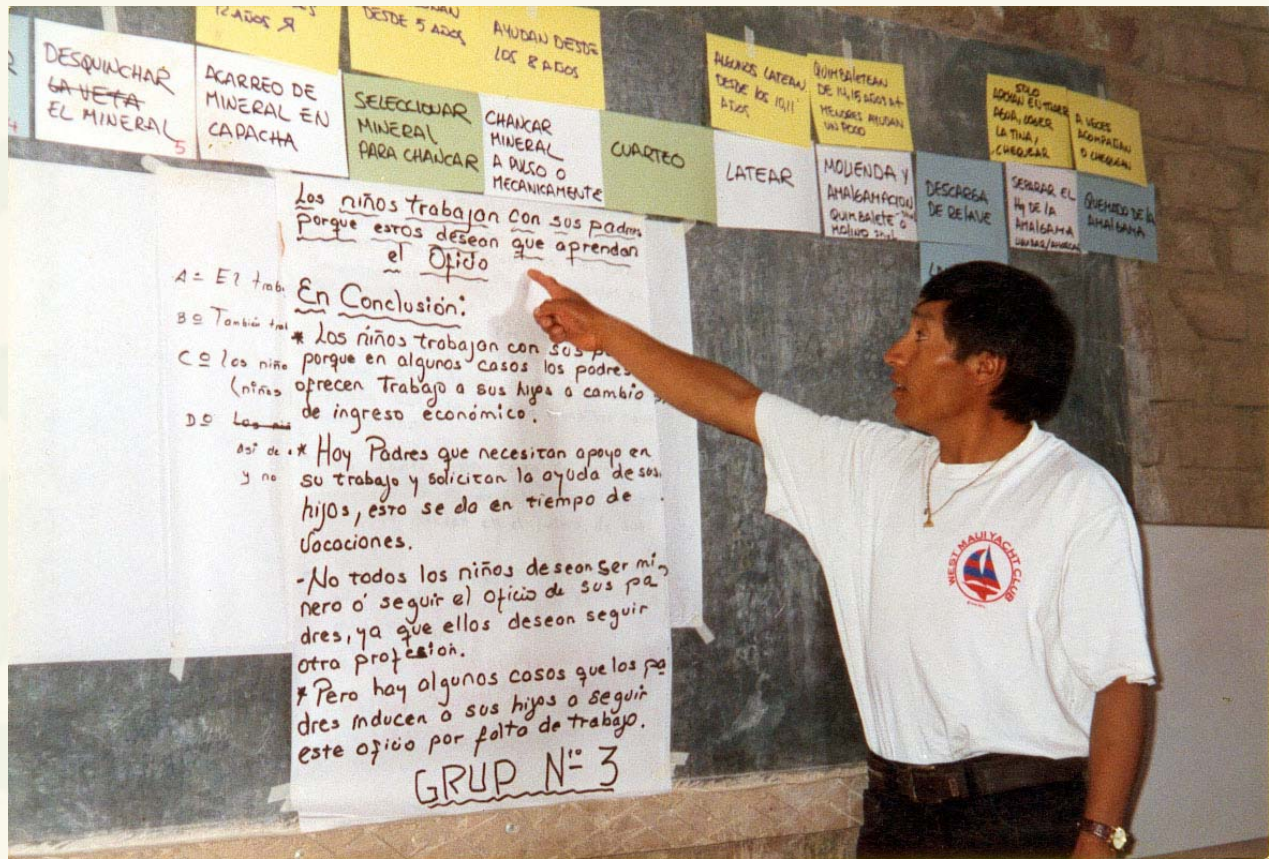 12 AÑOS
DESDE 5 AÑOS
AYUDAN DESDE
LOS 8 AÑOS
ALGUNOS LATEAN
DESDE LOS 10, 11
AÑOS
QUIMBALETEAN
DE 14, 15 AÑOS A +
MENORES AYUDAN
UN POCO
SOLO
APOYAN EN TRAER
AGUA, COGER
LA TINA,
CHEQUEAR
A VECES
ACOMPAÑAN
O CHEQUEAN
DESQUINCHAR
LA VETA
EL MINERAL
5
ACARREO DE
MINERAL EN
CAPACHA
SELECCIONAR
MINERAL
PARA CHANCAR
CHANCAR
MINERAL
A PULSO O
MECANICAMENTE
CUARTEO
LATEAR
MOLIENDA Y
AMALGAMACION
QUIMBALETE O
MOLINO
DESCARGA
DE RELAVE
SEPARAR EL
Hg DE LA
AMALGAMA
QUEMADO DE LA
AMALGAMA
Los niños trabajan con sus padres
porque estos desean que aprendan
el Oficio
En Conclusión:
* Los niños trabajan con sus
porque en algunos casos los padres
ofrecen Trabajo a sus hijos a cambio
de ingreso económico.
* Hay Padres que necesitan apoyo en
su trabajo y solicitan la ayuda de sus
hijos, esto se da en tiempo de
Vacaciones.
- No todos los niños desean ser mi
nero ó seguir el oficio de sus pa
dres, ya que ellos desean seguir
otra profesion.
* Pero hay algunos casos que los pa
dres inducen a sus hijos a seguir
este oficio por falta de trabajo.
GRUP Nº 3
A = El trab
B = También
C = los niño
(niños
D =
así de
y no
WEST MAUI YACHT CLUB